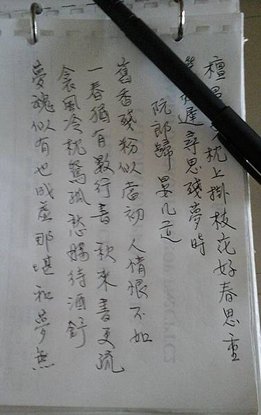 檀枕上掛枝花好春思重
遲尋思殘夢時
阮郎歸 晏几道
舊香殘粉似當初人情恨不如
一春猶有數行書秋來書更疏
衾鳳冷枕鴛孤愁腸待酒舒
夢魂似有也成虛那堪和夢無